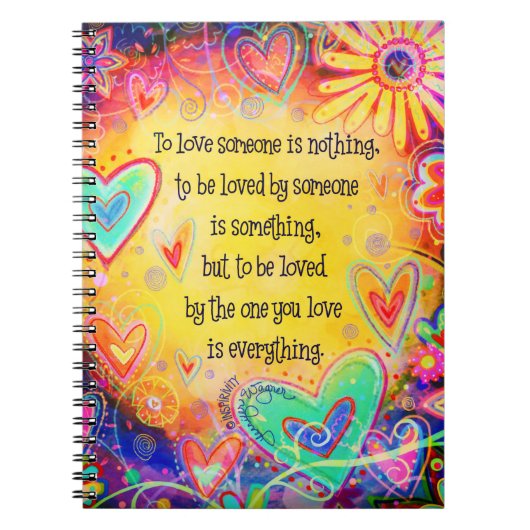 To love someone is nothing,
to be loved by someone
is something,
but to be loved
by the one you love
is everything.
©INSPIRIVITY
Jennifer Wagner